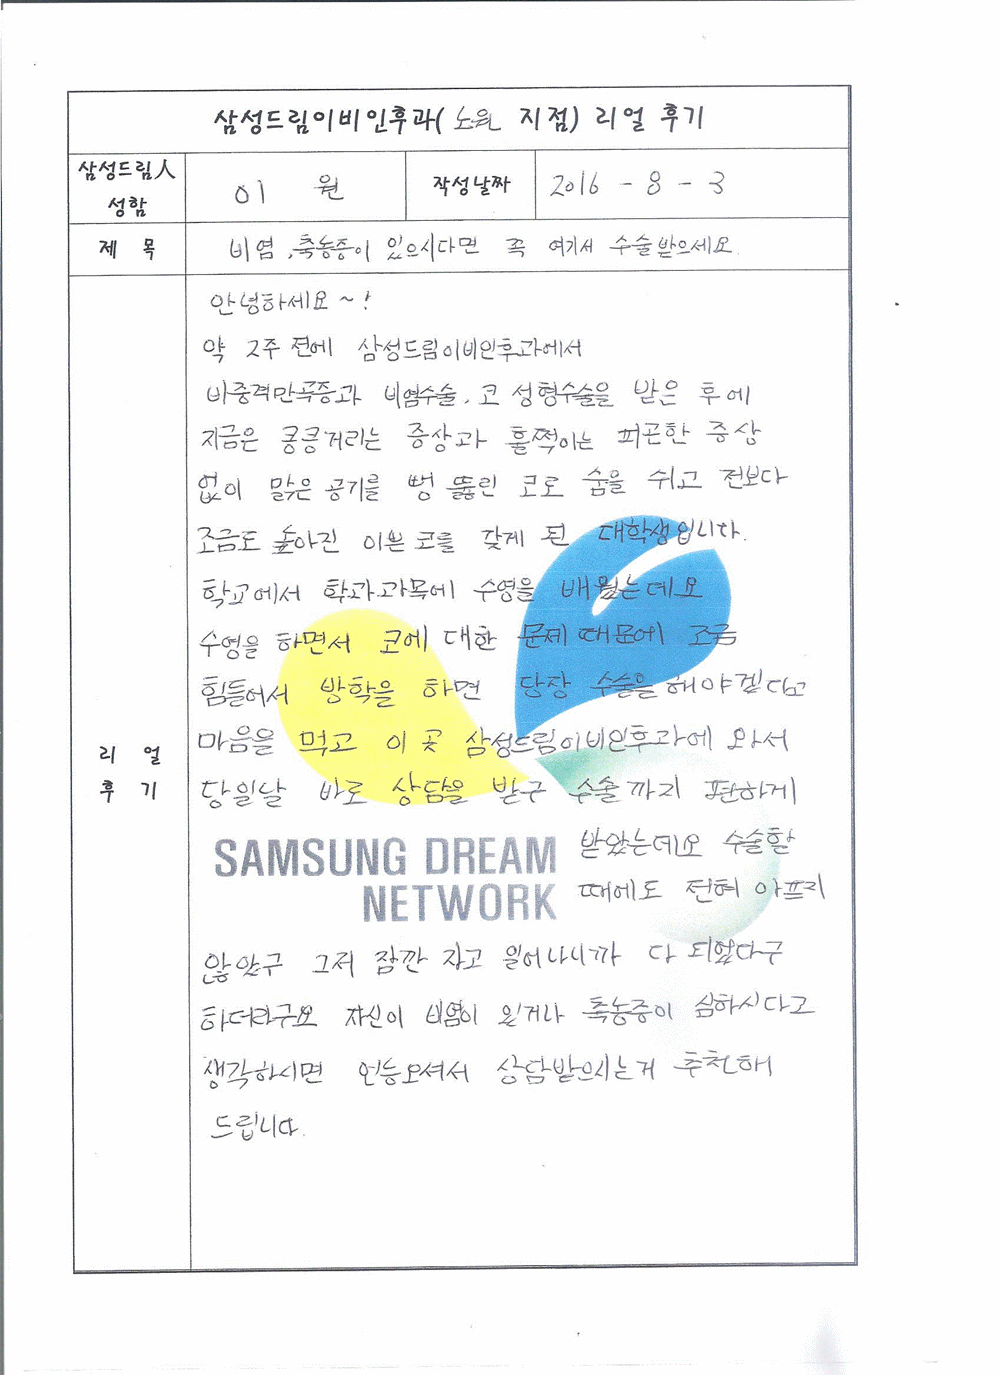 삼성드림이비인후과( 노원 지점) 리얼 후기
삼성드림人 성함
이 원
작성날짜
2016 - 8 - 3
제 목
비염, 축농증이 있으시다면 꼭 여기서 수술받으세요.
리 얼
후 기
안녕하세요 ~!
약 2주 전에 삼성드림이비인후과에서
비중격만곡증과 비염수술, 코 성형수술을 받은 후에
지금은 킁킁거리는 증상과 훌쩍이는 피곤한 증상
없이 맑은 공기를 뻥 뚫린 코로 숨을 쉬고 전보다
조금도 높아진 이쁜 코를 갖게 된 대학생입니다.
학교에서 학과과목에 수영을 배웠는데요
수영을 하면서 코에 대한 문제 때문에 조금
힘들어서 방학을 하면 당장 수술을 해야겠다고
마음을 먹고 이 곳 삼성드림이비인후과에 와서
당일날 바로 상담을 받구 수술까지 편하게
받았는데요 수술할
때에도 전혀 아프지
SAMSUNG DREAM
NETWORK
않았구 그저 잠깐 자고 일어나니까 다 되었다구
하더라구요 자신이 비염이 있거나 축농증이 심하시다고
생각하시면 언능오셔서 상담받으시는거 추천해
드립니다.